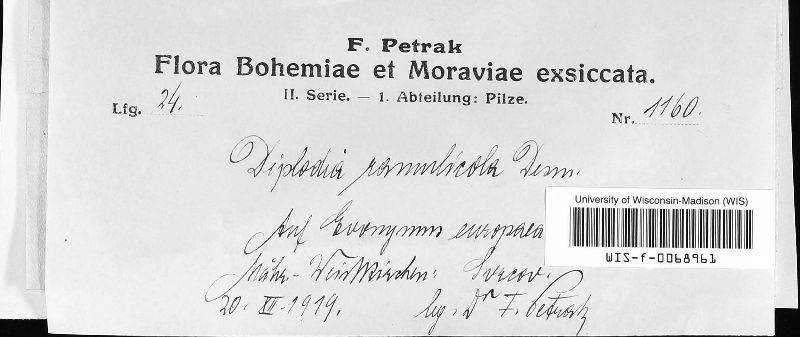 F. Petrak
Flora Bohemiae et Moraviae exsiccata.
II. Serie. — 1. Abteilung: Pilze.
Lfg. 24. Nr. 1160.
Diplodia ramulicola Desm.
Auf Evonymus europaea
Mähr.-Weisskirchen: Svrcov.
20. XII. 1919. leg. Dr F. Petrak
University of Wisconsin-Madison (WIS)
WIS-f-0068961